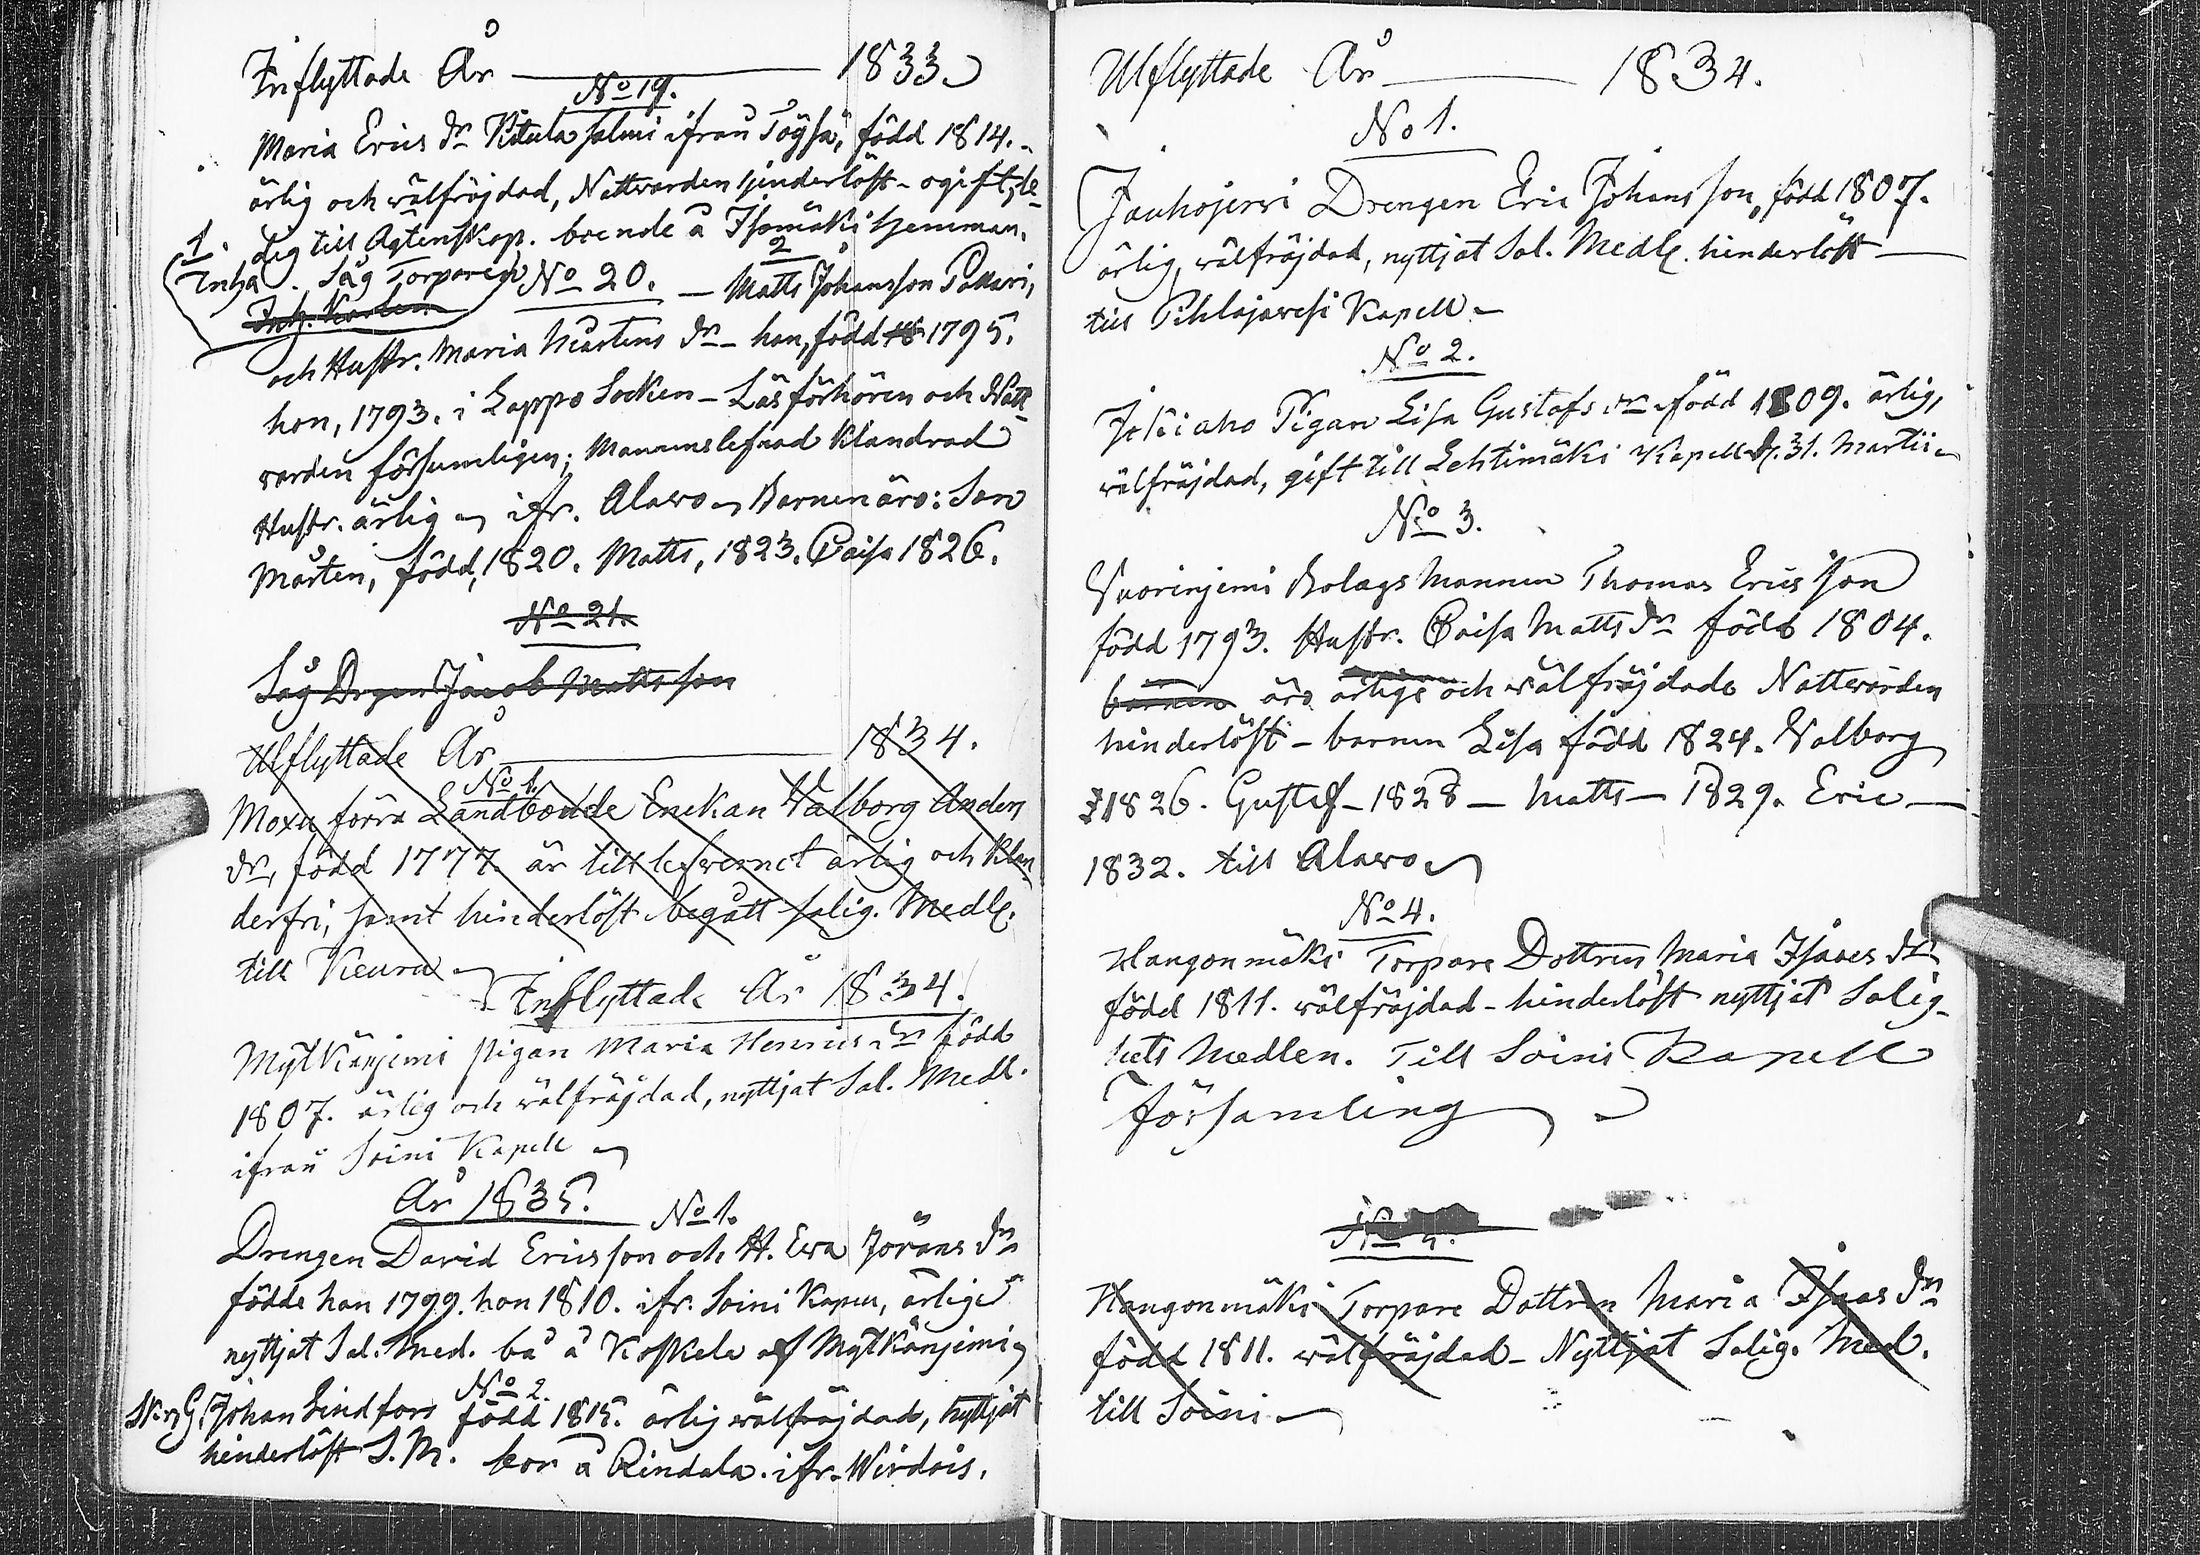 Inflyttade År — 1833
No 19.
Maria Erics dr Kitula salmi ifrån Töysä, född 1814.
ärlig och wälfräjdad, Nattvarden hinderlöst - ogift, le-
dig till Ägtenskap. boende å Isomäki hemman.
1. 2
Inha. Såg Torparen No 20. — Matts Johansson Pakkari,
Inh. Karlen
och Hustr. Maria Mårtens dr - han, född 18 1795.
hon, 1793. i Lappo Socken - Läsförhören och Natt-
varden försumligen; Mannens lefnad klandrad
Hustr. ärlig ifr. Alawo Barnen äro: Son
Mårten, född, 1820. Matts, 1823. Caisa 1826.
No 21.
Såg Drgen Jacob Mattsson
Utflyttade År — 1834.
No 1.
Moxu förra Landbonde Enekan Walborg Anders
dr, född 1777. är till lefvernet ärlig och klan-
derfri, samt hinderlöst begått salig. Medl.
till Keuru
Inflyttade År 1834.
Mytkänjemi pigan Maria Henrics dr född
1807. ärlig och wälfräjdad, nyttjat Sal. Medl.
ifrån Soini Kapell
År 1835.
No 1.
Drengen David Ericsson och H. Eva Jörans dr
födde han 1799. hon 1810. ifr. Soini Kapell, ärlige
nyttjat Sal. Med. bå å Koskela af Mytkänjemi
No 2.
Johan Lindfors född 1815. ärlig wälfräjdad, nyttjat
hinderlöst S. M. bor å Rindala. ifr. Wirdois.
Utflyttade År — 1834.
No 1.
Jauhojerwi Drengen Eric Johansson, född 1807.
ärlig, wälfräjdad, nyttjat Sal. Medl. hinderlöst —
till Pihlajavesi Kapell
No 2.
Jokiaho Pigan Lisa Gustafs dr född 1809. ärlig,
wälfräjdad, gift till Lehtimäki Kapell d. 31. Martii
No 3.
Vuorinjemi Bolags Mannen Thomas Ericsson
född 1793. Hustr. Caisa Matts dr född 1804.
barnen äro ärlige och wälfräjdade Nattvarden
hinderlöst - barnen Lisa född 1824. Valborg
1826. Gustaf - 1828 — Matts — 1829. Eric —
1832. till Alawo
No 4.
Hangonmäki Torpare Dottren Maria Isaacs dr
född 1811. wälfräjdad - hinderlöst nyttjat Salig-
hets Medlen. Till Soini Kapell
Församling
No 5.
Hangonmäki Torpare Dottren Maria Isaas dr
född 1811. wälfräjdad - Nyttjat Salig. Med.
till Soini —